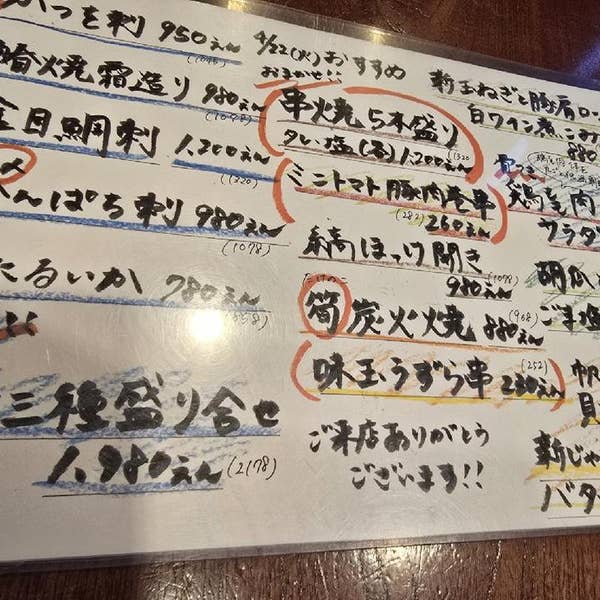 かつを刺 950えん
(1045)
焼霜造り 980えん
(1078)
金目鯛刺 1,200えん
(1320)
んぱち刺 980えん
(1078)
たるいか 780えん
(858)
三種盛り合せ
1,980えん (2178)
4/22(火)おすすめ
おまかせ!!
串焼5本盛り
タレ塩(各)1,200えん
(1320)
ミニトマト豚肉巻串
(282) 260えん
縞ほっけ開き
980えん (1078)
たけのこ
筍炭火焼 880えん
(968)
味玉うずら串 230えん
(252)
ご来店ありがとう
ございます!!
新玉ねぎと豚肩ロー
白ワイン煮こみ
880
鶏
肉
サラダ
胡瓜
ごま塩
帆
貝
新じゃ
バター